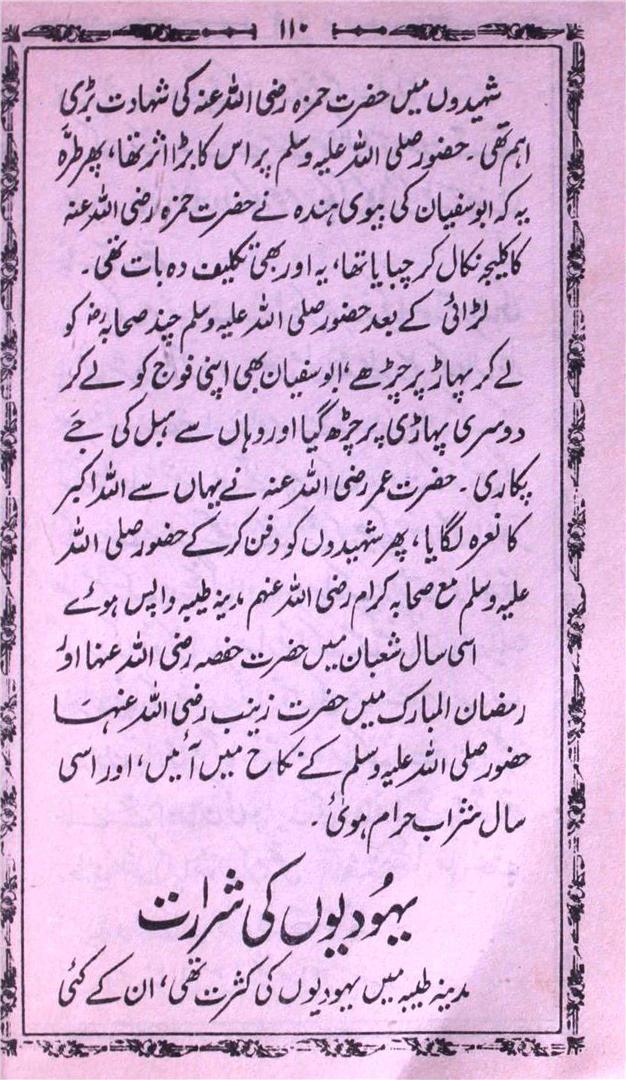 ۱۱۰
شہیدوں میں حضرت حمزہ رضی اللہ عنہ کی شہادت بڑی
اہم تھی۔ حضور صلی اللہ علیہ وسلم پر اس کا بڑا اثر تھا، پھر طرہ
یہ کہ ابو سفیان کی بیوی ہندہ نے حضرت حمزہ رضی اللہ عنہ
کا کلیجہ نکال کر چبایا تھا، یہ اور بھی تکلیف دہ بات تھی۔
لڑائی کے بعد حضور صلی اللہ علیہ وسلم چند صحابہؓ کو
لے کر پہاڑ پر چڑھے، ابو سفیان بھی اپنی فوج کو لے کر
دوسری پہاڑی پر چڑھ گیا اور وہاں سے ہبل کی جَے
پکاری۔ حضرت عمر رضی اللہ عنہ نے یہاں سے اللہ اکبر
کا نعرہ لگایا، پھر شہیدوں کو دفن کر کے حضور صلی اللہ
علیہ وسلم مع صحابہ کرام رضی اللہ عنہم مدینہ طیبہ واپس ہوئے
اسی سال شعبان میں حضرت حفصہ رضی اللہ عنہا اور
رمضان المبارک میں حضرت زینب رضی اللہ عنہا
حضور صلی اللہ علیہ وسلم کے نکاح میں آئیں، اور اسی
سال شراب حرام ہوئی۔
یہُودیوں کی شرارت
مدینہ طیبہ میں یہودیوں کی کثرت تھی، ان کے کئی